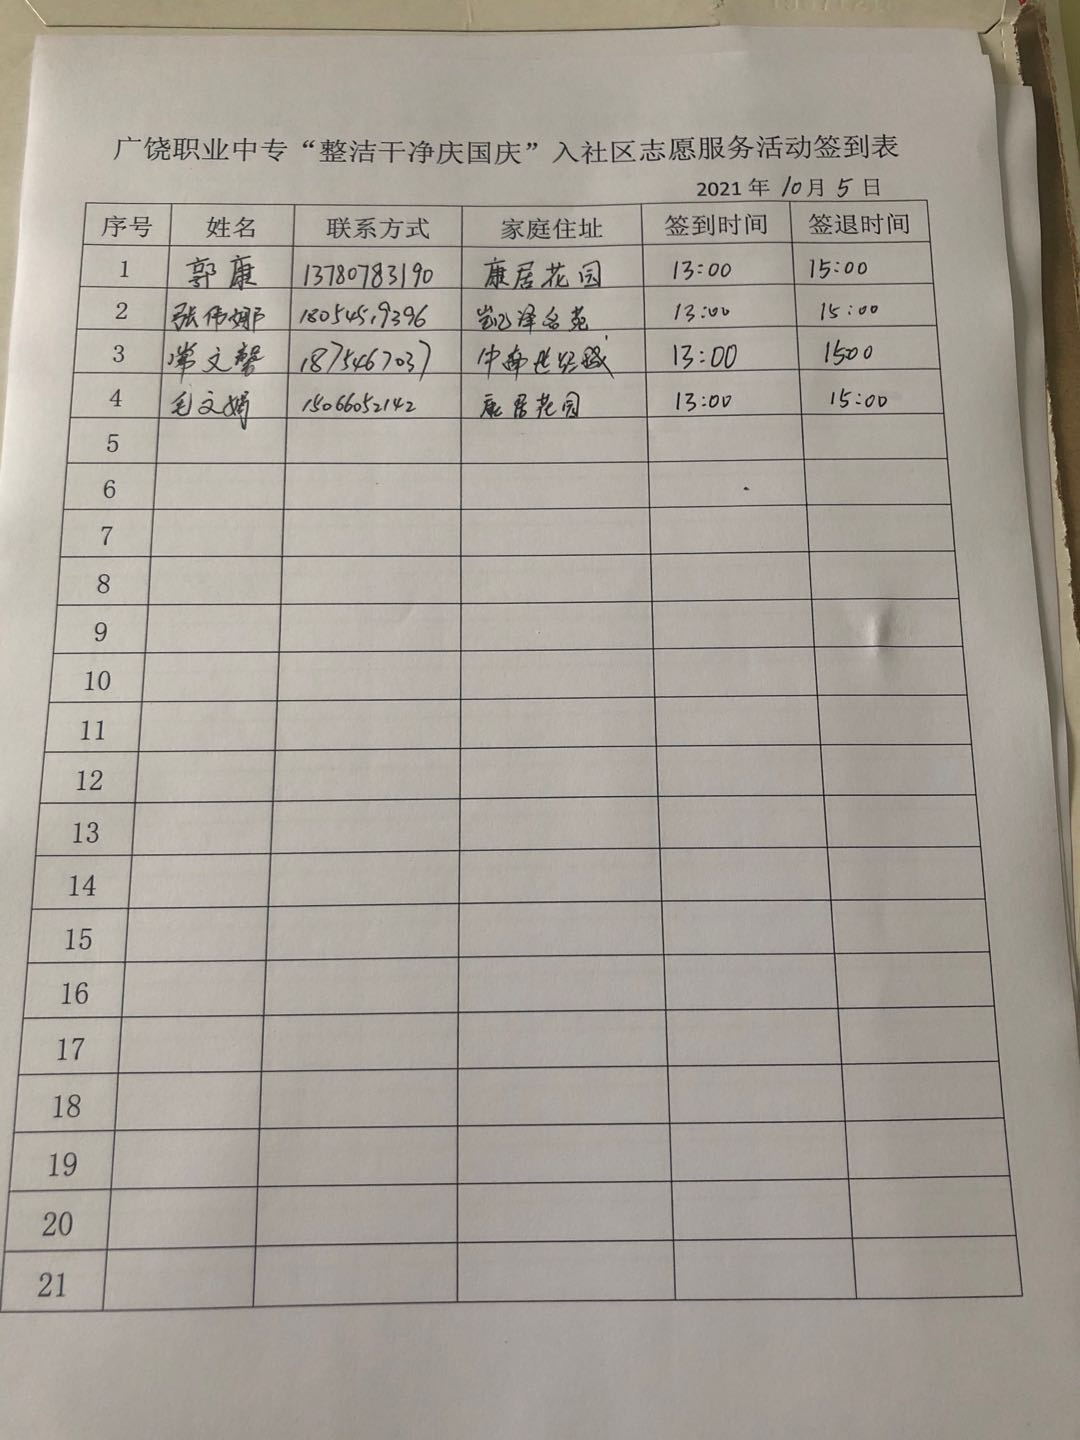 广饶职业中专“整洁干净庆国庆”入社区志愿服务活动签到表
2021 年 10月 5 日
序号 姓名 联系方式 家庭住址 签到时间 签退时间
1 郭康 13780783190 康居花园 13:00 15:00
2 张伟娜 18054519396 凯泽名苑 13:00 15:00
3 常文馨 1875467037 中南世纪城 13:00 1500
4 毛文娟 15066052142 康居花园 13:00 15:00
5
6
7
8
9
10
11
12
13
14
15
16
17
18
19
20
21